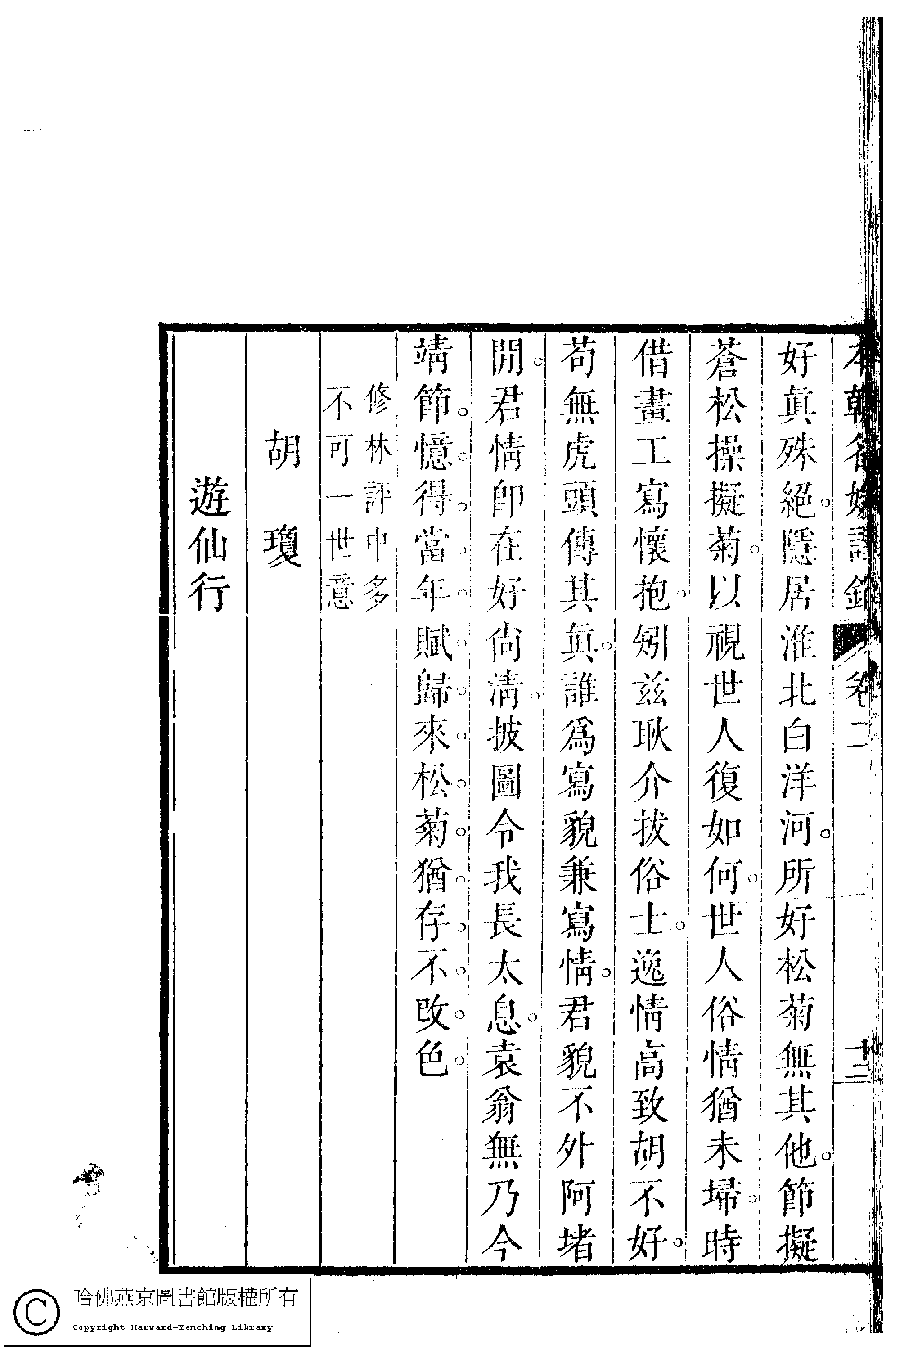 本朝名媛詩鈔 卷二 十二
好真殊絕。隱居淮北白洋河。所好松菊無其他。節擬
蒼松操擬菊。以視世人復如何。世人俗情猶未埽。時
借畫工寫懷抱。矧茲耿介拔俗士。逸情高致胡不好。
苟無虎頭傳其真。誰為寫貌兼寫情。君貌不外阿堵
間。君情卽在好尙清。披圖令我長太息。袁翁無乃今
靖節。憶。得。當。年。賦。歸。來。松。菊。猶。存。不。改。色。
修林評中多
不可一世意
胡瓊
遊仙行
哈佛燕京圖書館版權所有
Copyright Harvard-Yenching Library